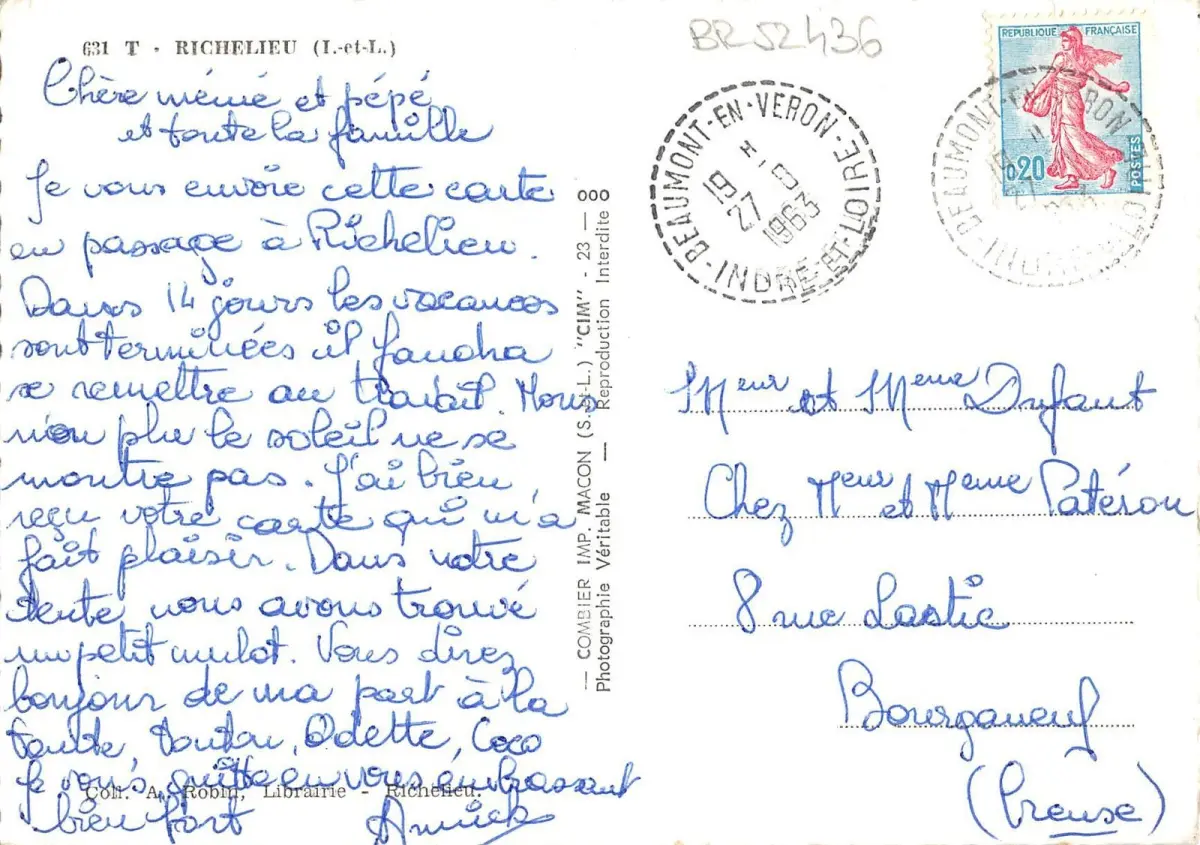 631 T - RICHELIEU (I.-et-L.)
Chère mémé et pépé
et toute la famille
Je vous envoie cette carte
en passage à Richelieu.
Dans 14 jours les vacances
sont terminées il faudra
se remettre au travail. Nous
non plu le soleil ne se
montre pas. J'ai bien
reçu votre carte qui m'a
fait plaisir. Dans notre
tente nous avons trouvé
un petit mulot. Vous direz
bonjour de ma part à la
tante, tonton, Odette, Coco
Je vous quitte en vous embrassant
bien fort Annick
Coll. A. Robin, Librairie - Richelieu.
— COMBIER IMP. MACON (S.-et-L.) "CIM" - 23 —
Photographie Véritable — Reproduction Interdite
BR52436
BEAUMONT-EN-VERON
19 H
27 - 8
1963
INDRE-ET-LOIRE
REPUBLIQUE FRANÇAISE
0,20
POSTES
BEAUMONT-EN-VERON
INDRE-ET-LOIRE
Meur et Meme Dufaut
Chez Meur et Meme Patéron
8 rue Lastic
Bourganeuf
(Creuse)